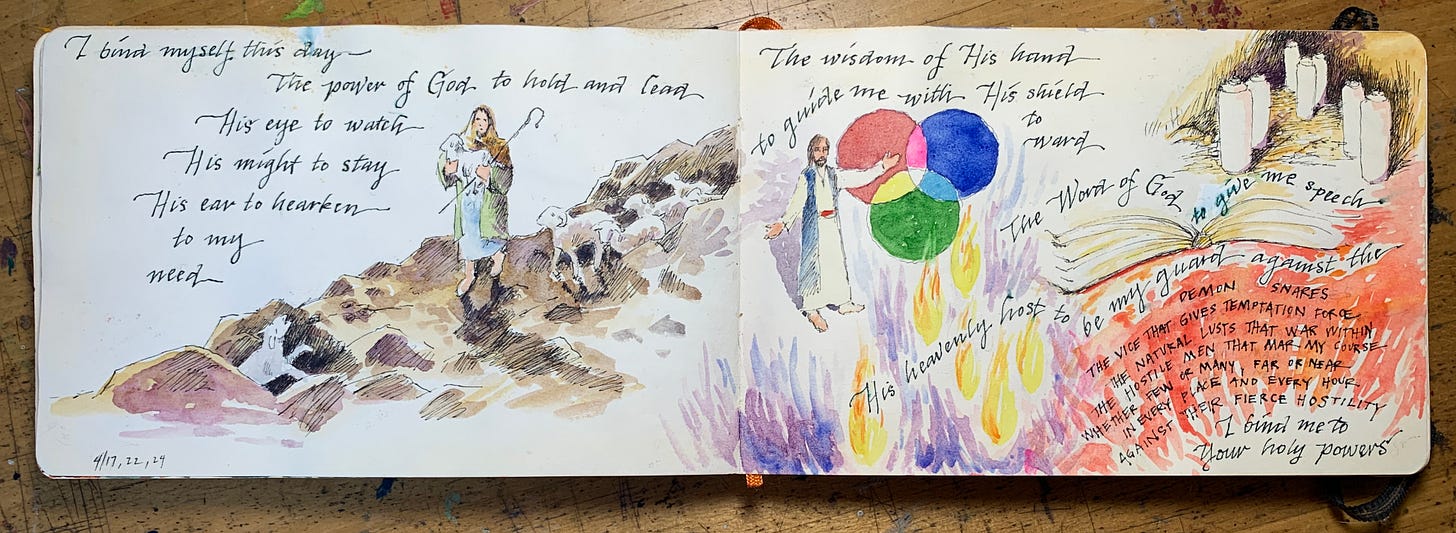 I bind myself this day
The power of God to hold and lead
His eye to watch
His might to stay
His ear to hearken
to my
need
4/17, 22, 24
The wisdom of His hand
to guide me with His shield
to
ward
The Word of God to give me speech
His heavenly host to be my guard against the
DEMON SNARES
THE VICE THAT GIVES TEMPTATION FORCE
THE NATURAL LUSTS THAT WAR WITHIN
THE HOSTILE MEN THAT MAR MY COURSE
WHETHER FEW OR MANY, FAR OR NEAR
IN EVERY PLACE AND EVERY HOUR
AGAINST THEIR FIERCE HOSTILITY
I bind me to
Your holy powers